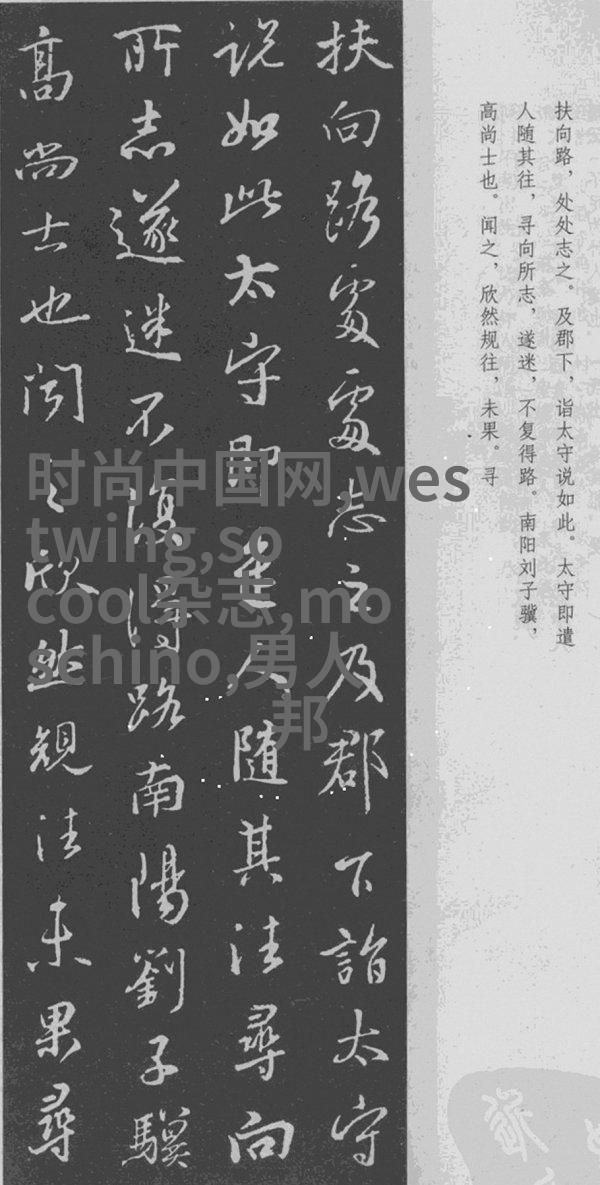 扶向路處處志之及郡下詣太守
说如此太守即遣人随其往尋向
所志遂迷不復得路南陽劉子驥
高尚士也闻之欣然規往未果尋
扶向路，处处志之。及郡下，诣太守说如此。太守即遣
人随其往，寻向所志，遂迷，不复得路。南阳刘子骥，
高尚士也。闻之，欣然规往，未果。寻
时尚中国网,wes
twing,so
cool杂志,mo
schino,男人
邦